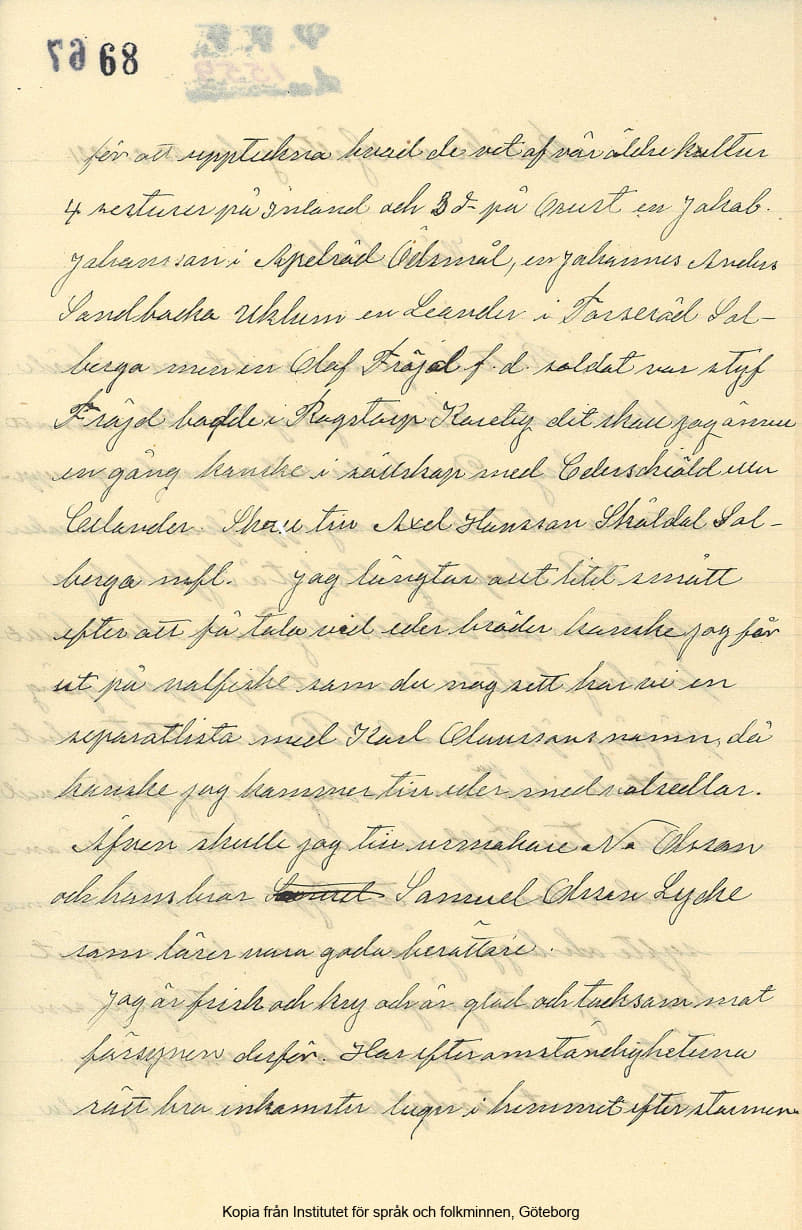 68
för att uppteckna hvad de vet af vår äldre kultur
4 resturer på Inland och 3 d- på Orust en Jakob.
Johansson i Apelröd Ödsmål, en Johannes Anders
Sandbacka Uklum en Leander i Torseröd Sol-
berga men en Olof Fröjd f. d. soldat var styf
Fröjd bodde i Rogstorp Kareby dit skall jag ännu
en gång kanske i sällskap med Cederschiöld eller
Celander. Skall till Axel Hansson Sköldal Sol-
berga mfl. Jag längtar allt litet smått
efter att få tala vid eder bröder kanske jag får
ut på valfiske som du nog sett har vi en
separatlista med Karl Olaussons namn, då
kanske jag kommer till eder med valsedlar.
Äfven skulle jag till urmakare Olsson
och hans bror Samuel Olsson Lycke
som lärer vara goda berättare.
Jag är frisk och kry och är glad och tacksam mot
försynen derför. Har efter omständigheterna
rätt bra inkomster lugn i hemmet efter stormen
Kopia från Institutet för språk och folkminnen, Göteborg